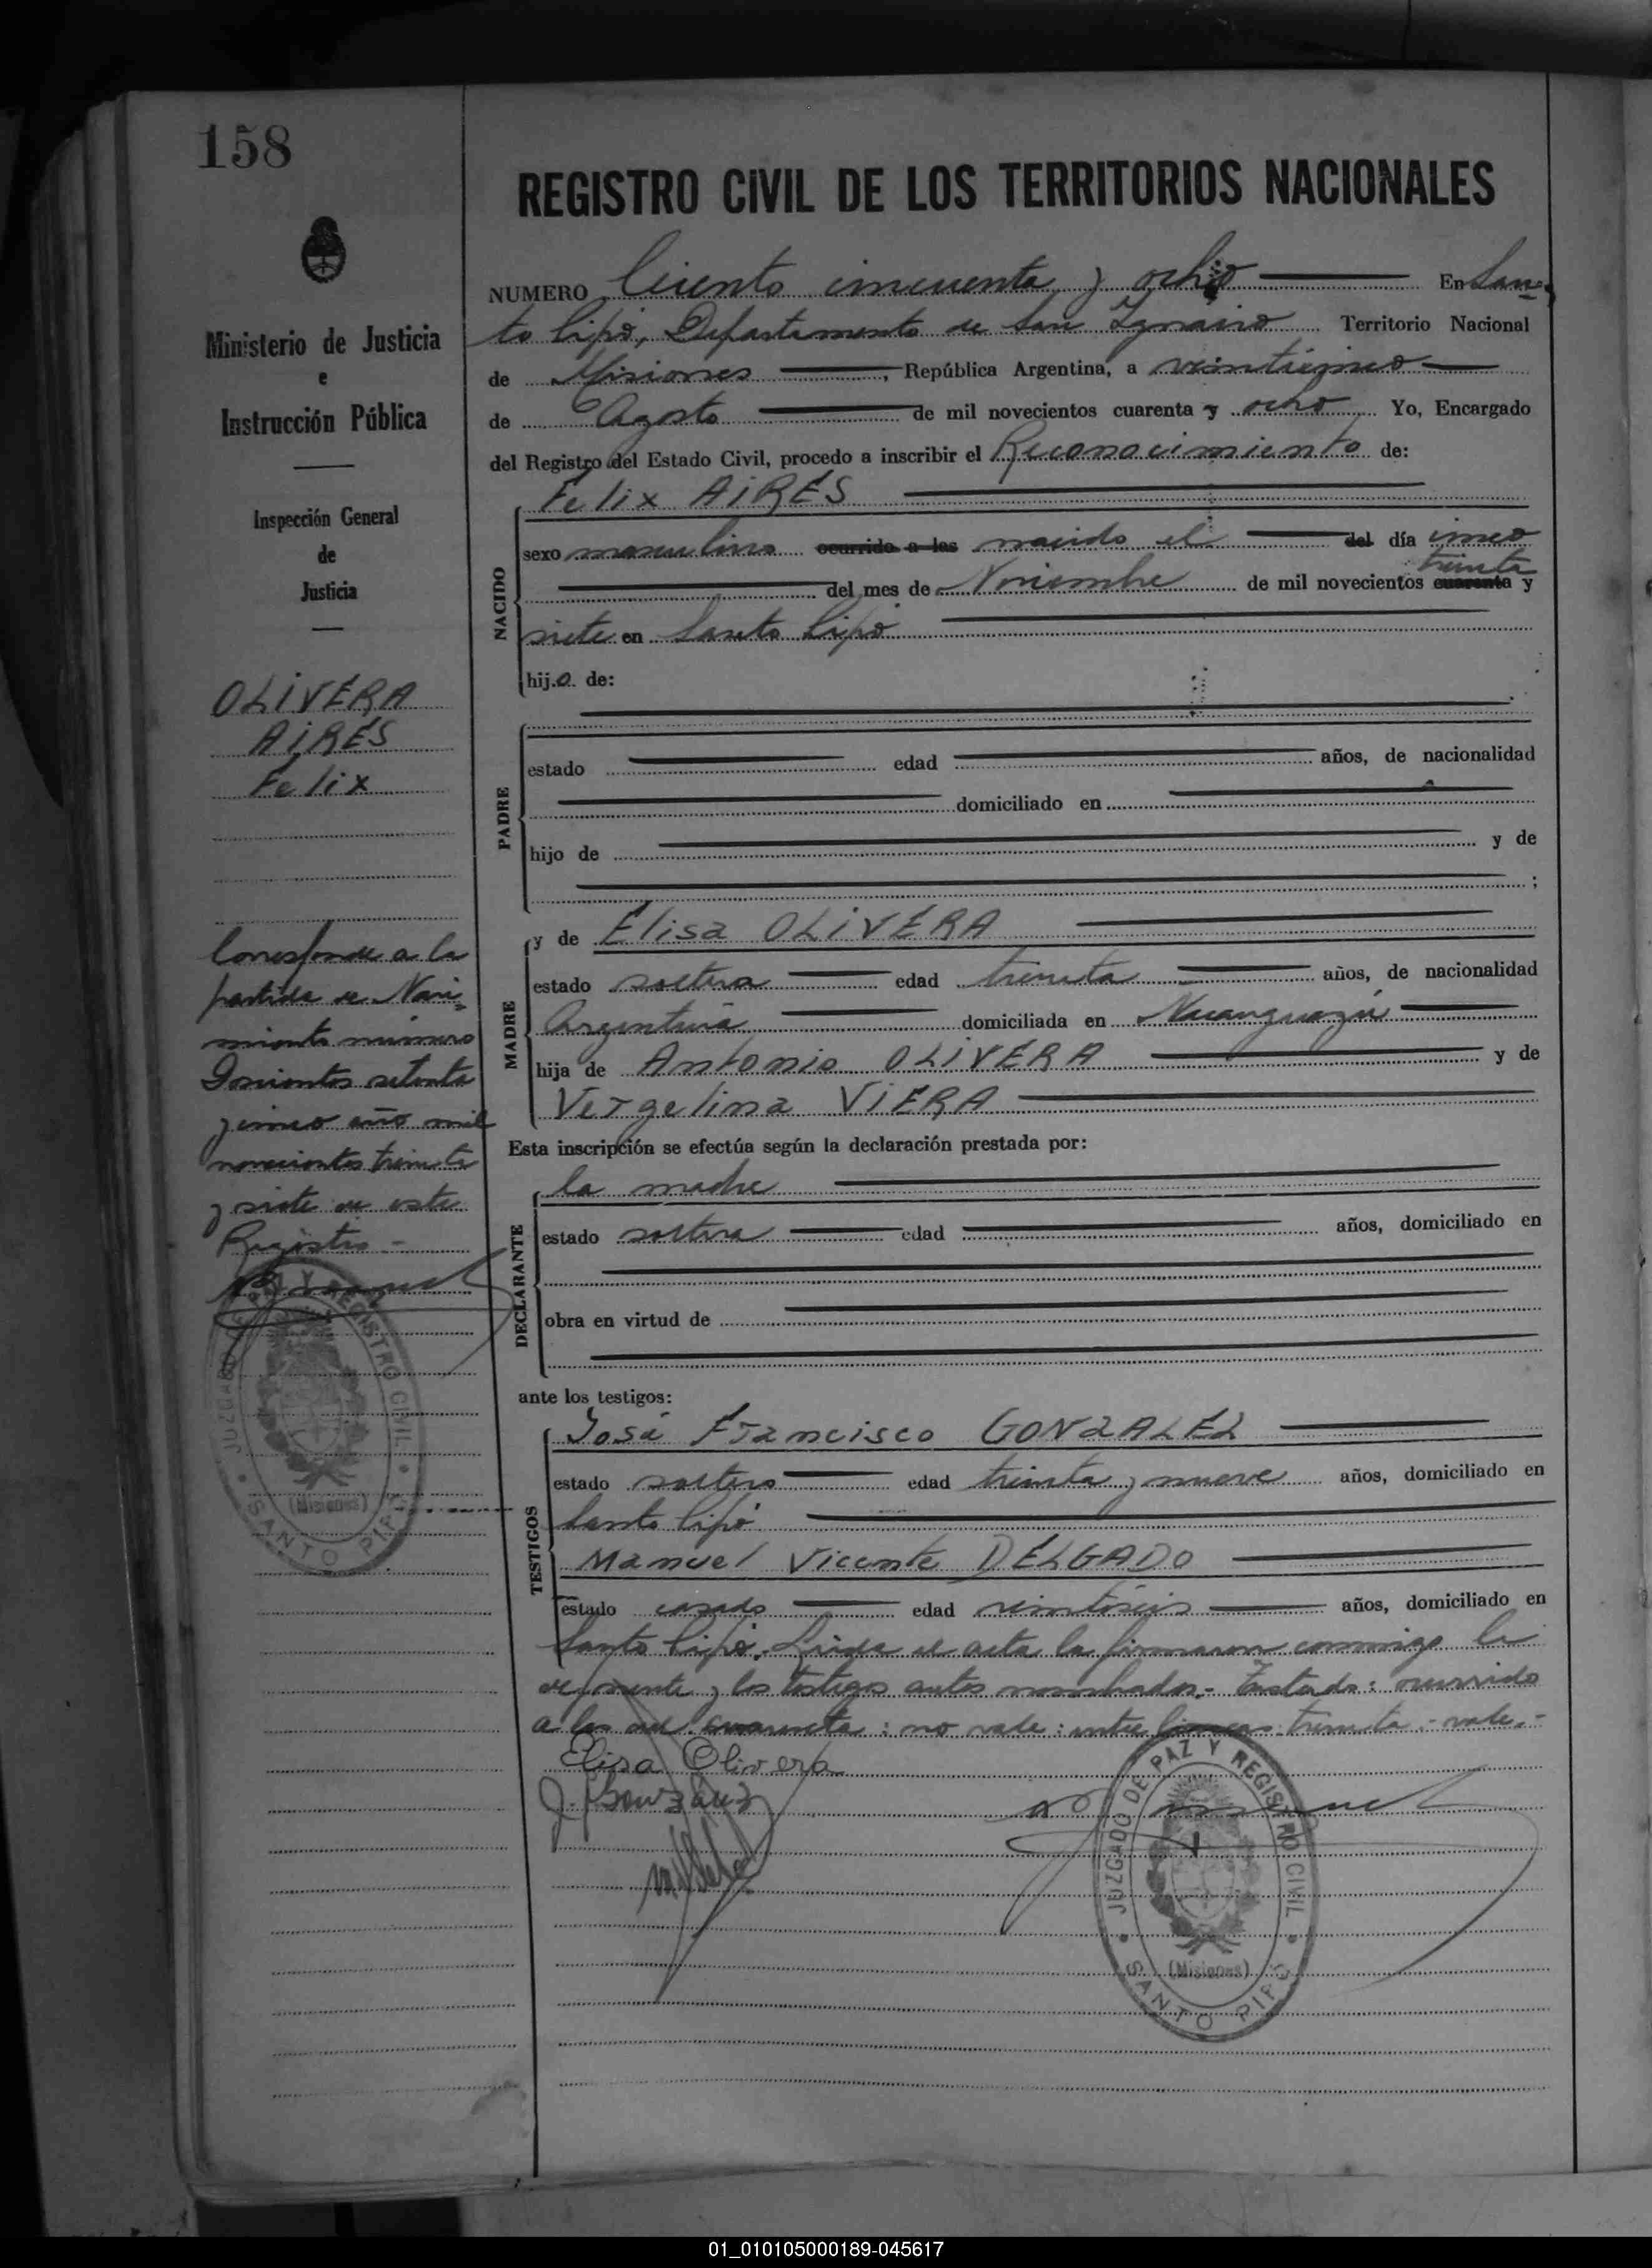 158
Ministerio de Justicia
e
Instrucción Pública
Inspección General
de
Justicia
OLIVERA
AIRES
Felix
Corresponde a la
partida de Naci-
miento número
Doscientos setenta
y cinco año mil
novecientos treinta
y siete de este
Registro -
JUZGADO DE PAZ Y REGISTRO CIVIL
(Misiones)
SANTO PIPÓ
REGISTRO CIVIL DE LOS TERRITORIOS NACIONALES
NUMERO Ciento cincuenta y ocho En San-
to Pipó, Departamento de San Ignacio Territorio Nacional
de Misiones, República Argentina, a veinticinco
de Agosto de mil novecientos cuarenta y ocho Yo, Encargado
del Registro del Estado Civil, procedo a inscribir el Reconocimiento de:
NACIDO
Felix AIRES
sexo masculino ocurrido a las nacido el del día cinco
treinta
del mes de Noviembre de mil novecientos cuarenta y
siete en Santo Pipó
hijo de:
PADRE
estado edad años, de nacionalidad
domiciliado en
hijo de y de
;
MADRE
y de Elisa OLIVERA
estado soltera edad treinta años, de nacionalidad
Argentina domiciliada en Ñacanguazú
hija de Antonio OLIVERA y de
Vergelina VIERA
Esta inscripción se efectúa según la declaración prestada por:
DECLARANTE
la madre
estado soltera edad años, domiciliado en
obra en virtud de
ante los testigos:
TESTIGOS
José Francisco GONZALEZ
estado soltero edad treinta y nueve años, domiciliado en
Santo Pipó
Manuel Vicente DELGADO
estado casado edad veintiséis años, domiciliado en
Santo Pipó. Leída el acta la firmaron conmigo la
deponente y los testigos antes nombrados.- Testado: ocurrido
a las del cuarenta: no vale: entre lineas treinta - vale.-
Elisa Olivera
J. F. González
JUZGADO DE PAZ Y REGISTRO CIVIL
(Misiones)
SANTO PIPÓ
01_010105000189-045617